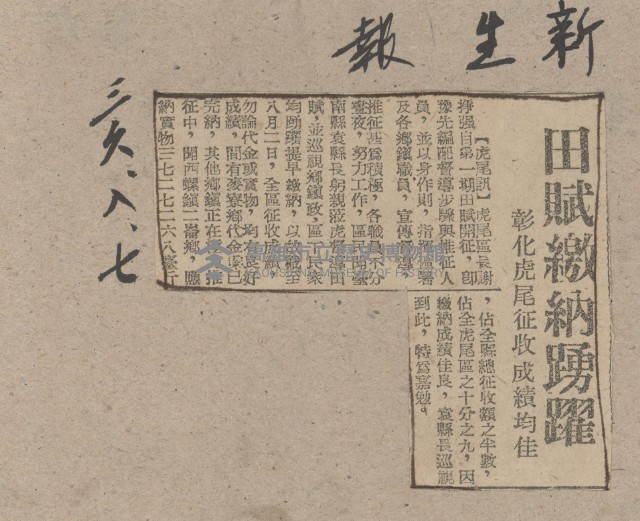 新生報
三六、八、七
田賦繳納踴躍
彰化虎尾征收成績均佳
【虎尾訊】虎尾區長謝
掙强自第一期田賦開征，卽
豫先編配督導步驟與推征人
員，並以身作則，指揮區署
及各鄉鎮職員，宣傳督導
推征甚爲積極，各職員不分
晝夜，努力工作，區民咸
南縣袁縣長躬親蒞虎督導田
賦，並巡視鄉鎮政，區丁民衆
均踴躍提早繳納，以故截至
八月一日，全區征收成績
勿論代金或實物，均有良好
成績，間有麥寮鄉代金業已
完納，其他鄉鎮正在
推
征中，聞西螺鎮二崙鄉，應
納實物三七二七二六八臺斤
，佔全縣總征收額之半數，
佔全虎尾區之十分之九，因
繳納成績佳良，袁縣長巡視
到此，特爲嘉勉。
高雄市立歷史博物館
KAOHSIUNG MUSEUM OF HISTORY